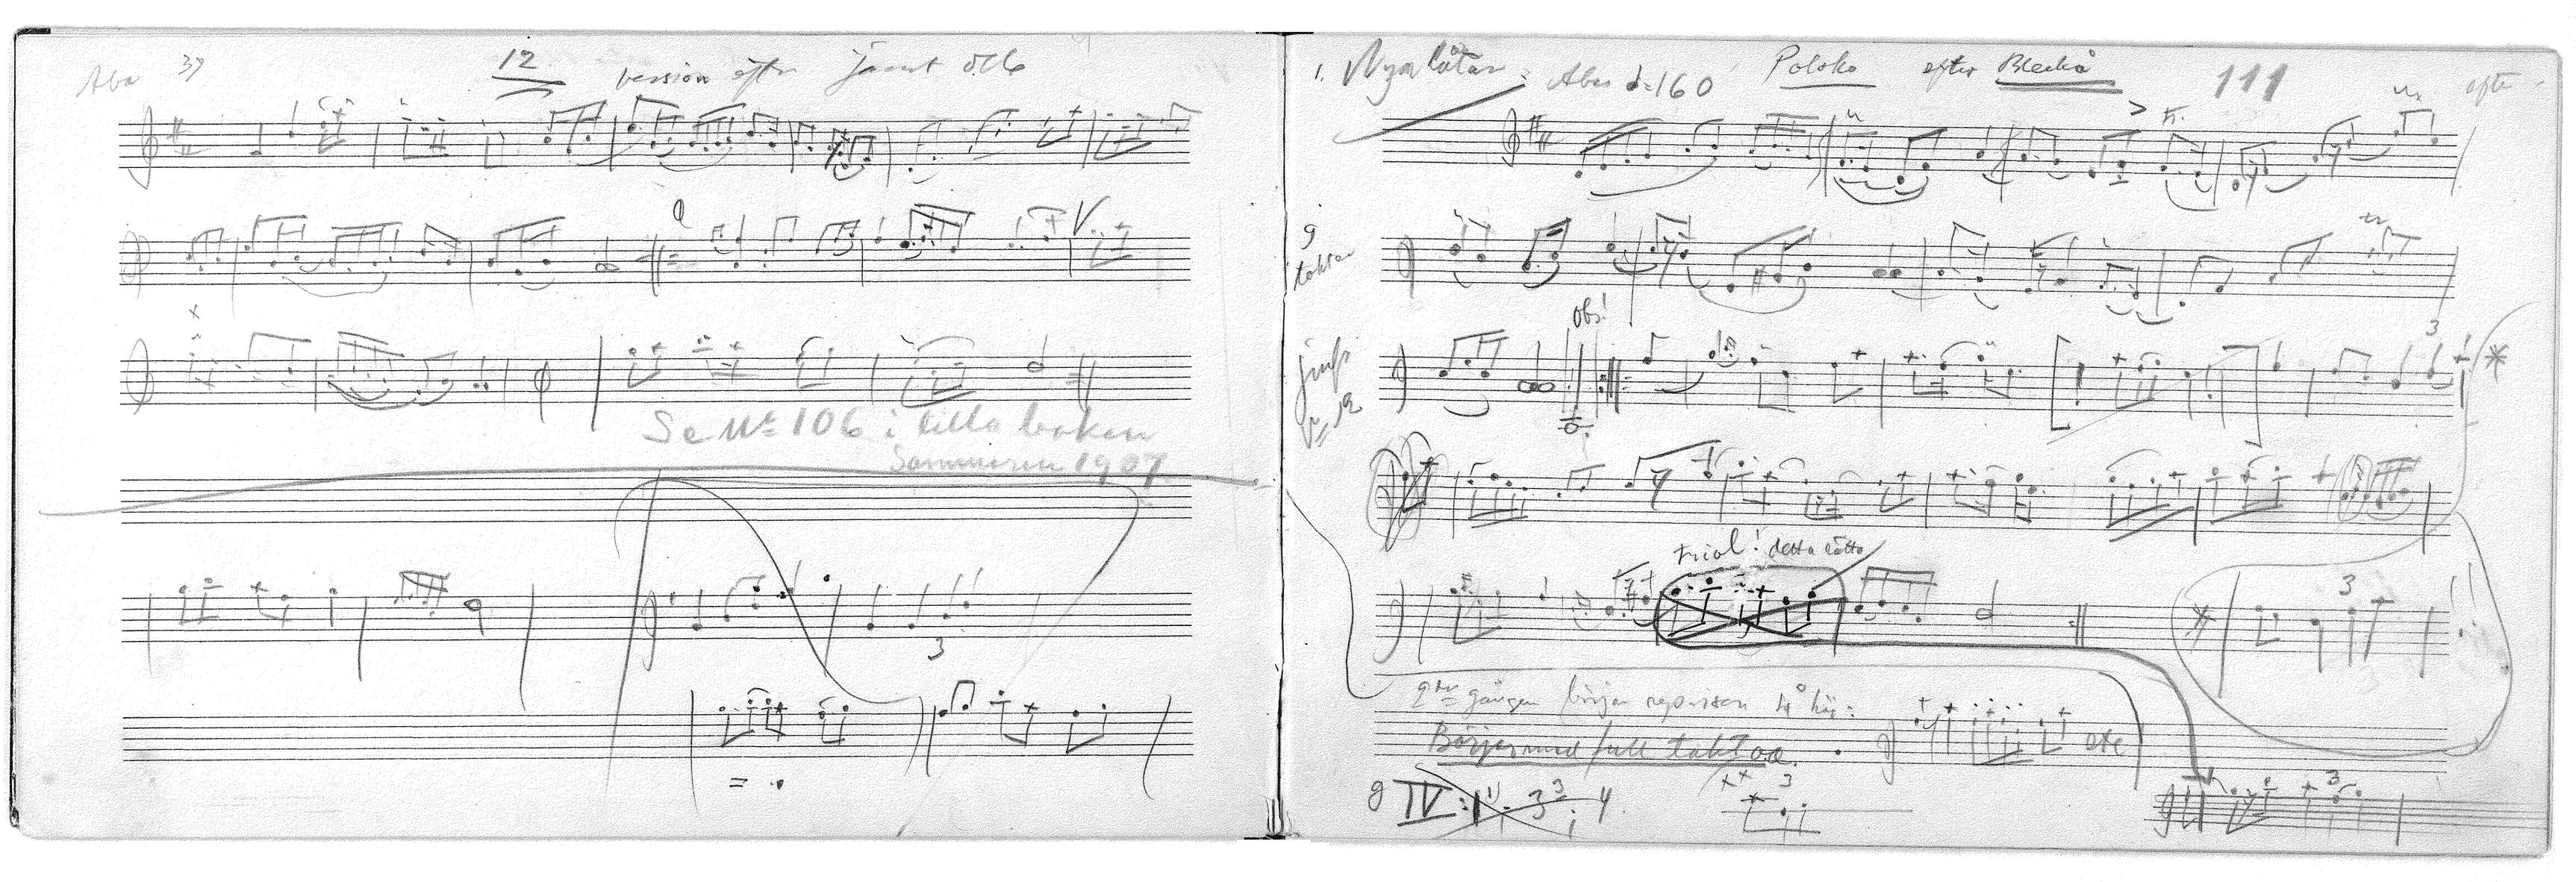 Aba 37
12
version efter Jämt Olle
Se Nr 106 i lilla boken
Sommaren 1907
3
1. Nya låtar: Abas 160 Polska efter Blecko 111 efter
9
takter
jmfr
Nr 12
Obs!
3
Triol! detta rätta
3
2dra gången börjar reprisen så här:
Börjar med full takt
etc
g IV: 1) 3 3 ; 4
xx 3
3